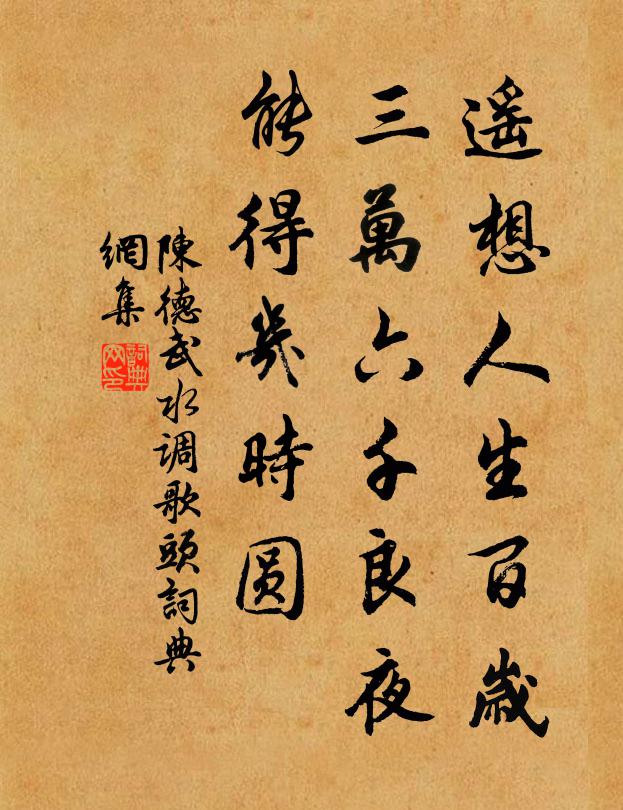 遙想人生百歲
三萬六千良夜
能得幾時圆
陳德武水调歌頭詞典
網集
詞典
网印